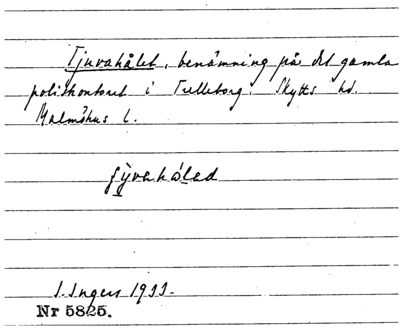 Tjuvahålet, benämning på det gamla
poliskontoret i Trelleborg. Skytts hd.
Malmöhus l.
I. Ingers 1933.
Nr 5825.